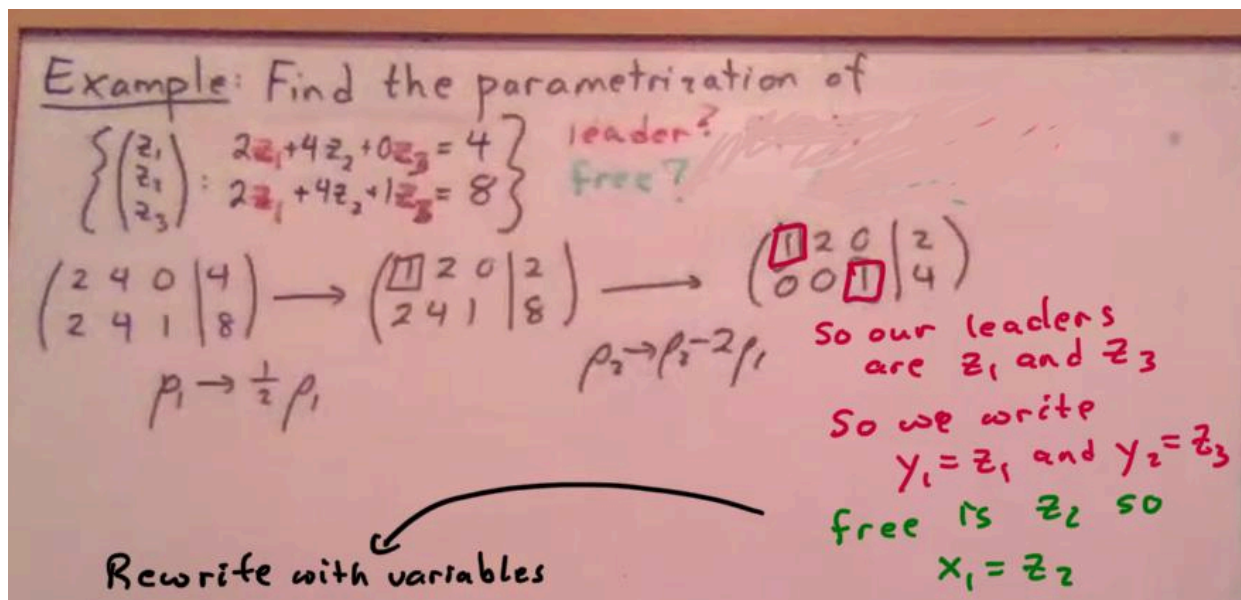 Example: Find the parametrization of
{(z₁ z₂ z₃) : 2z₁+4z₂+0z₃ = 4
2z₁+4z₂+1z₃ = 8}
leader?
free?
(2 4 0 | 4
2 4 1 | 8) → (1 2 0 | 2
2 4 1 | 8) → (1 2 0 | 2
0 0 1 | 4)
ρ₁ → ½ ρ₁
ρ₂ → ρ₂ - 2ρ₁
So our leaders
are z₁ and z₃
So we write
y₁ = z₁ and y₂ = z₃
free is z₂ so
x₁ = z₂
Rewrite with variables